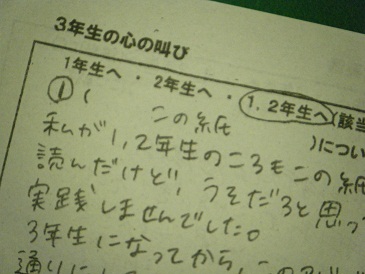 3年生の心の叫び
1年生へ ・ 2年生へ ・ 1,2年生へ(該当
① ( この紙 )につい
私が1,2年生のころもこの紙
読んだけど、うそだろと思っ
実践しませんでした。
3年生になってから、この
通りに